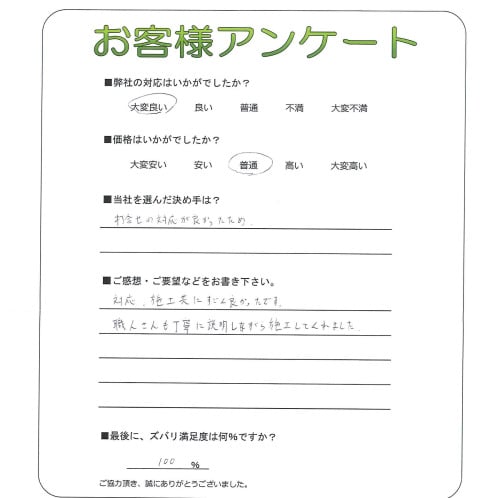 お客様アンケート
■弊社の対応はいかがでしたか？
大変良い 良い 普通 不満 大変不満
■価格はいかがでしたか？
大変安い 安い 普通 高い 大変高い
■当社を選んだ決め手は？
打合せの対応が良かったため。
■ご感想・ご要望などをお書き下さい。
対応、施工共にすごく良かったです。
職人さんも丁寧に説明しながら施工してくれました。
■最後に、ズバリ満足度は何%ですか？
100 %
ご協力頂き、誠にありがとうございました。